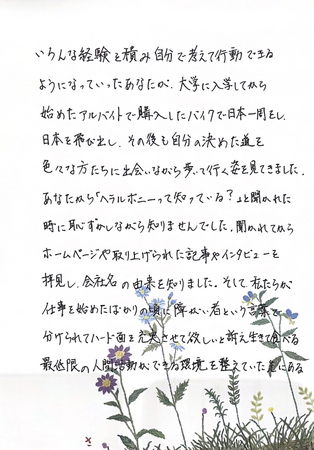 いろんな経験を積み自分で考えて行動できる
ようになっていったあなたが、大学に入学してから
始めたアルバイトで購入したバイクで日本一周をし、
日本を飛び出し、その後も自分の決めた道を
色々な方たちに出会いながら歩って行く姿を見てきました。
あなたから「ヘラルボニーって知っている?」と聞かれた
時に恥ずかしながら知りませんでした。聞かれてから
ホームページや取り上げられた記事やインタビューを
拝見し、会社名の由来を知りました。そして私たちが
仕事を始めたばかりの頃に障がい者という言葉で
分けられてハード面を充実させて欲しいと訴え生きて
最低限の人間活動ができる環境を整えていた